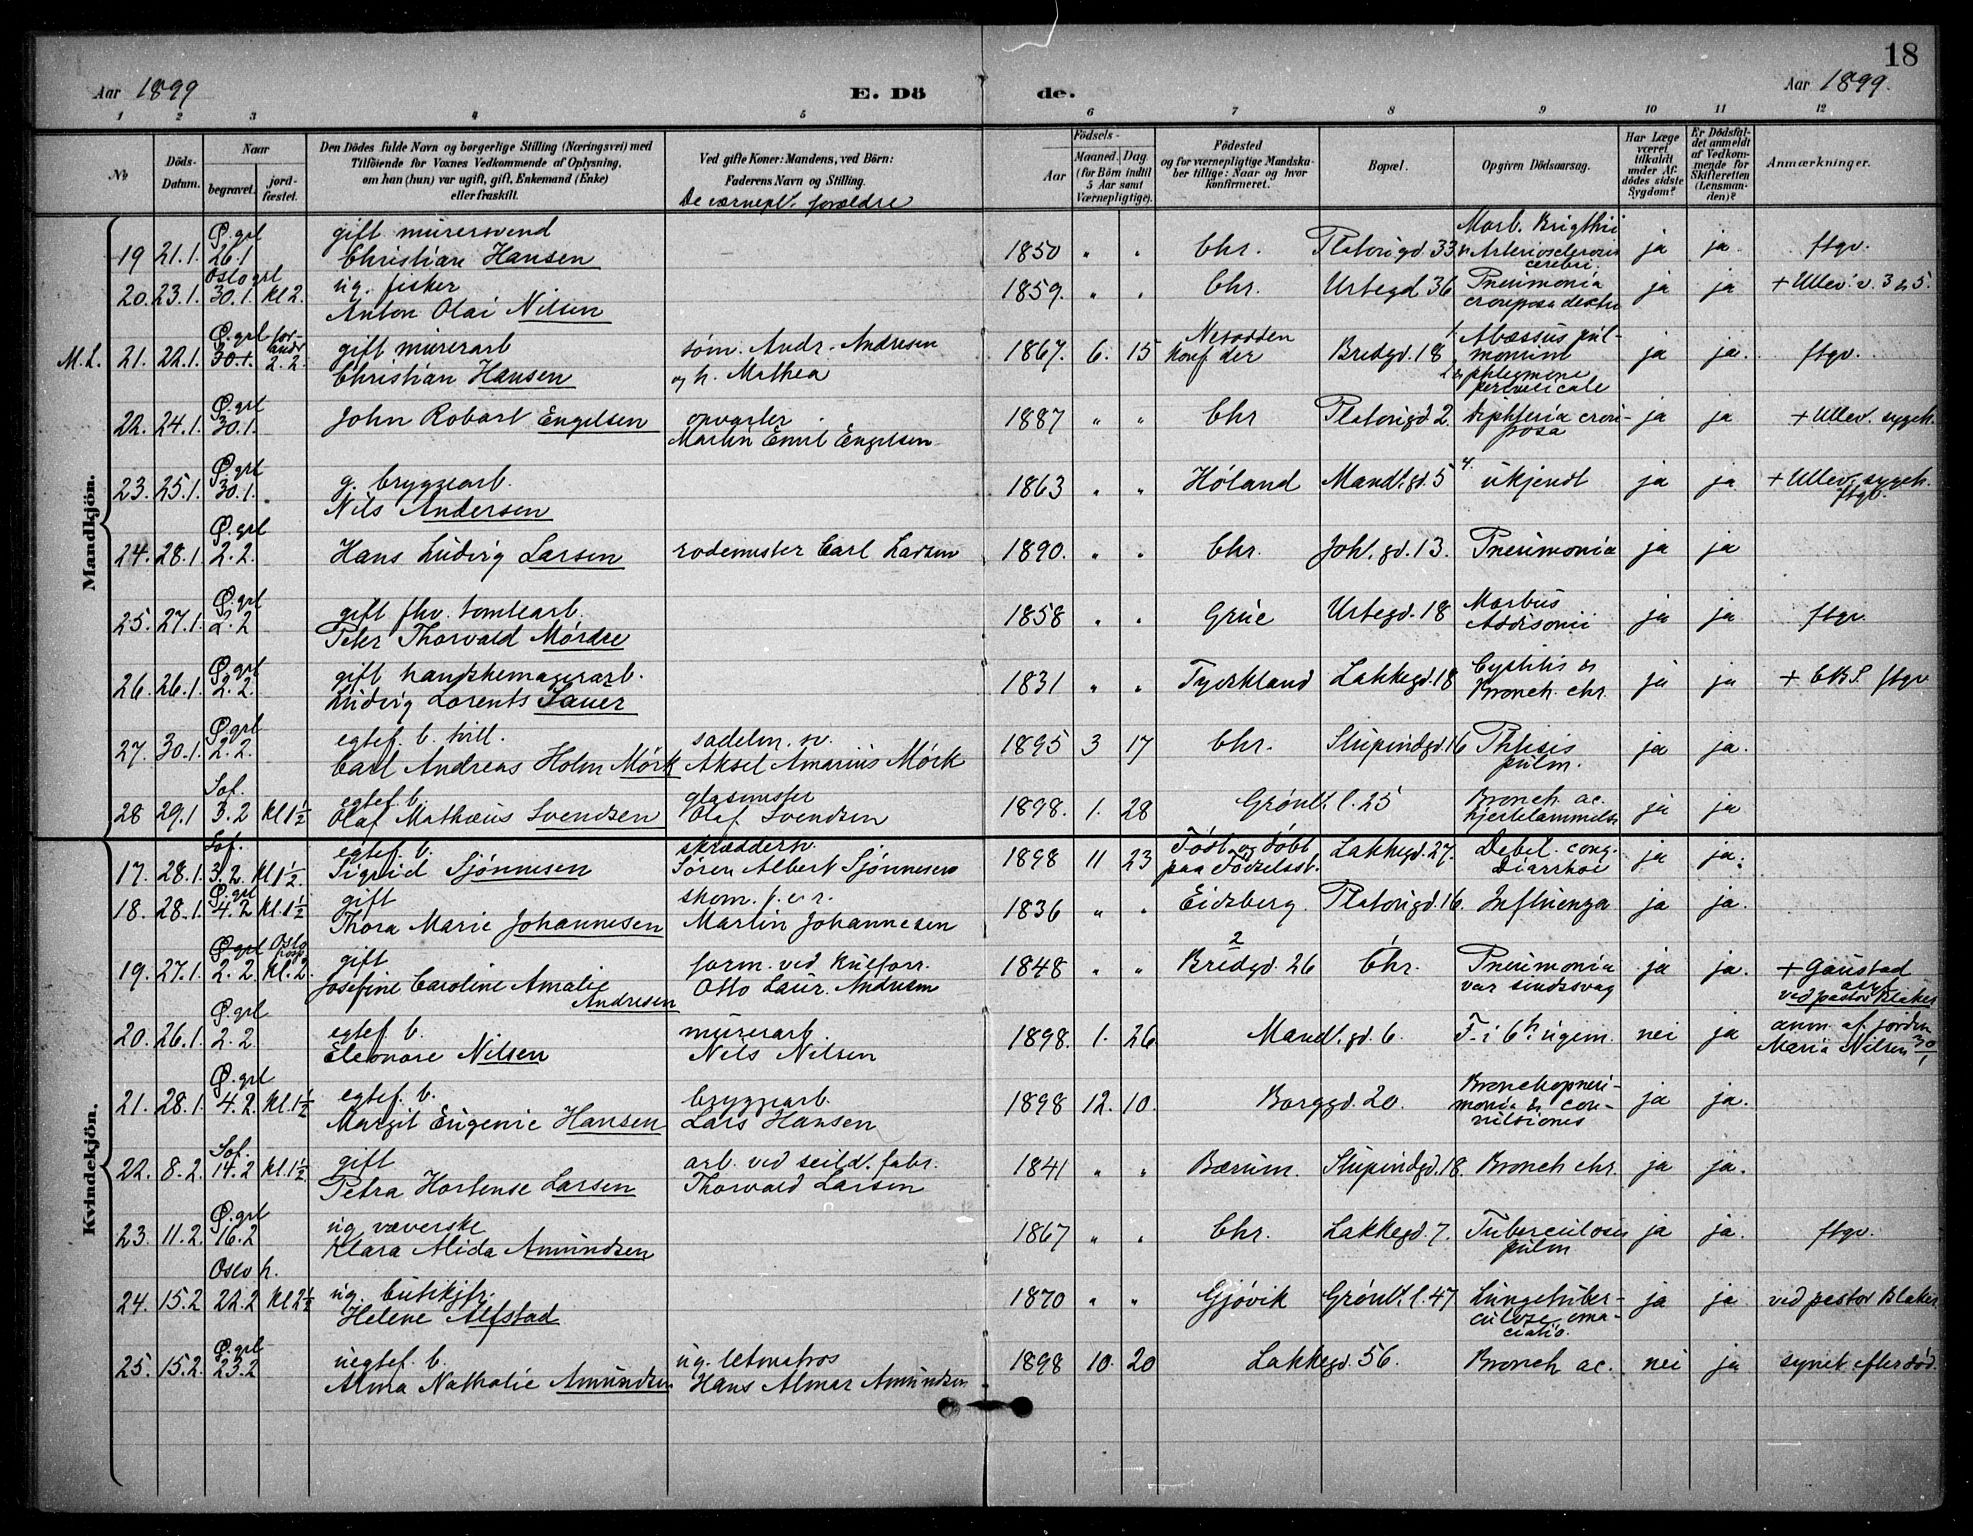 18
Aar 1899
E. Dö de.
Aar 1899.
1 2 3 4 5 6 7 8 9 10 11 12
No
Döds-Datum.
Naar
begravet.
jordfæstet.
Den Dödes fulde Navn og borgerlige Stilling (Næringsvei) med
Tilföiende for Voxnes Vedkommende af Oplysning,
om han (hun) var ugift, gift, Enkemand (Enke)
eller fraskilt.
Ved gifte Koner: Mandens, ved Börn:
Faderens Navn og Stilling.
De værnepl. forældre
Födsels-
Aar
Maaned. Dag
(for Börn indtil
5 Aar samt
Værnepligtige).
Födested
og for værnepligtige Mandska-
ber tillige: Naar og hvor
konfirmeret.
Bopæl.
Opgiven Dödsaarsag.
Har Læge
været
tilkaldt
under Af-
dödes sidste
Sygdom?
Er Dödsfal-
det anmeldt
af Vedkom-
mende for
Skifteretten
(Lensman-
den)?
Anmærkninger.
Mandkjön.
19 21.1. Ø.grl 26.1 gift murersvend Christian Hansen 1850 " " Chr. Platousgd. 33 Morb. Brigthii & Arteriosclerosis cerebri. ja ja. ftgv.
20. 23.1. Oslo grl 30.1. kl 2. ug. fisker Anton Olai Nilsen 1859. " " Chr. Urtegd 36 Pneumonia crouposa dextra ja ja + Ullev. v. 3 & 5.
M.L. 21. 22.1. Ø.grl 30.1. 2.2. gift murerarb Christian Hansen søm. Andr. Andresen og h. Mathea 1867. 6. 15 Nesodden konf der Bredgd. 18 ja ja. ftgv.
22. 24.1. Ø.grl 30.1. John Robart Engelsen opvarter Martin Emil Engelsen 1887 " " Chr Platousgd 2. Diphteria crouposa ja ja + Ullev. sygeh.
23. 25.1. Ø.grl 30.1. g. bryggearb. Nils Andersen 1863 " " Høland Mandl.gd. 5 ukjendt ja ja + Ullev. sygeh. ftgv.
24. 28.1. Ø.grl 2.2. Hans Ludvig Larsen rodemester Carl Larsen 1890. " " Chr. Joh.gd. 13. Pneumonia ja ja
25. 27.1. Ø.grl 2.2 gift fhv. tomtearb. Peter Thorvald Mørdre 1858 " " Grue Urtegd. 18 Morbus Addisonii ja ja ftgv.
26. 26.1. Ø.grl 2.2. gift handskemagerarb. Ludvig Lorents Sauer 1831 " " Tyskland Lakkegd. 18 Cystitis & Bronch. chr. ja ja + CBS. ftgv
27. 30.1. Ø.grl 2.2. egtef. b. tvill. Carl Andreas Holm Mørk sadelm. sv. Aksel Amarius Mørk 1895 3 17 Chr. Stupindgd. 16 Phtisis pulm. ja ja.
28 29.1 Sof. 3.2 kl 1½ egtef. b. Olaf Mathæus Svendsen glasmester Olaf Svendsen 1898. 1. 28 Grønl. l. 25 Bronch ac. hjertelammelse ja ja
Kvindekjön.
17. 28.1. Sof. 3.2. kl 1½. egtef. b. Sigrid Sjønnesen skræddersv. Søren Albert Sjønnesen 1898 11 23 Født og døbt paa Fødselsst. Lakkegd. 27. Debil. cong. Diarrhoe ja ja.
18. 28.1. Ø.grl 4.2 kl. 1½ gift Thora Marie Johannesen skom. Martin Johannesen 1836 " " Eidsberg. Platousgd. 16. Influenza ja ja.
19. 27.1. Ø.grl 2.2. Oslo hosp kl. 2. gift Josefine Caroline Amalie Andresen form. ved kulforr. Otto Laur. Andresen 1848 " " 2 Bredgd. 26 1 Chr. Pneumonia var sindssvag ja ja. + Gaustad asyl ved pastor Blaker
20. 26.1. Ø.grl 2.2. egtef. b. Eleonore Nilsen murerarb. Nils Nilsen 1898. 1. 26 Mandl.gd. 6. F. i 6te ugem. nei ja anm. af jordm Maria Nilsen 30/1
21. 28.1. Ø.grl 4.2. kl 1½ egtef. b. Margit Eugenie Hansen bryggearb. Lars Hansen 1898 12. 10. Borggd. 20. Bronchopneumonia & convulsiones ja ja.
22. 8.2. Sof. 14.2 kl. 1½ gift Petra Hortense Larsen arb. ved seild. fabr. Thorvald Larsen 1841 " " Bærum. Stupindgd. 18. Bronch chr. ja ja.
23. 11.2. Ø.grl 16.2 ug. væverske Klara Alida Amundsen 1867 " " Chr. Lakkegd. 7. Tuberculosis pulm ja ja. ftgv.
24. 15.2 Oslo h. 22.2 kl 2½ ug. butikjfr. Helene Alfstad 1870 " " Gjøvik Grønl. l. 47 Lungetuberculose emaciatio. ja ja ved pastor Blaker
25. 15.2. Ø.grl 23.2 uegtef. b. Alma Nathalie Amundsen ug. letmatros Hans Almar Amundsen 1898 10. 20 Lakkegd. 56. Bronch ac. nei ja synet efter død.